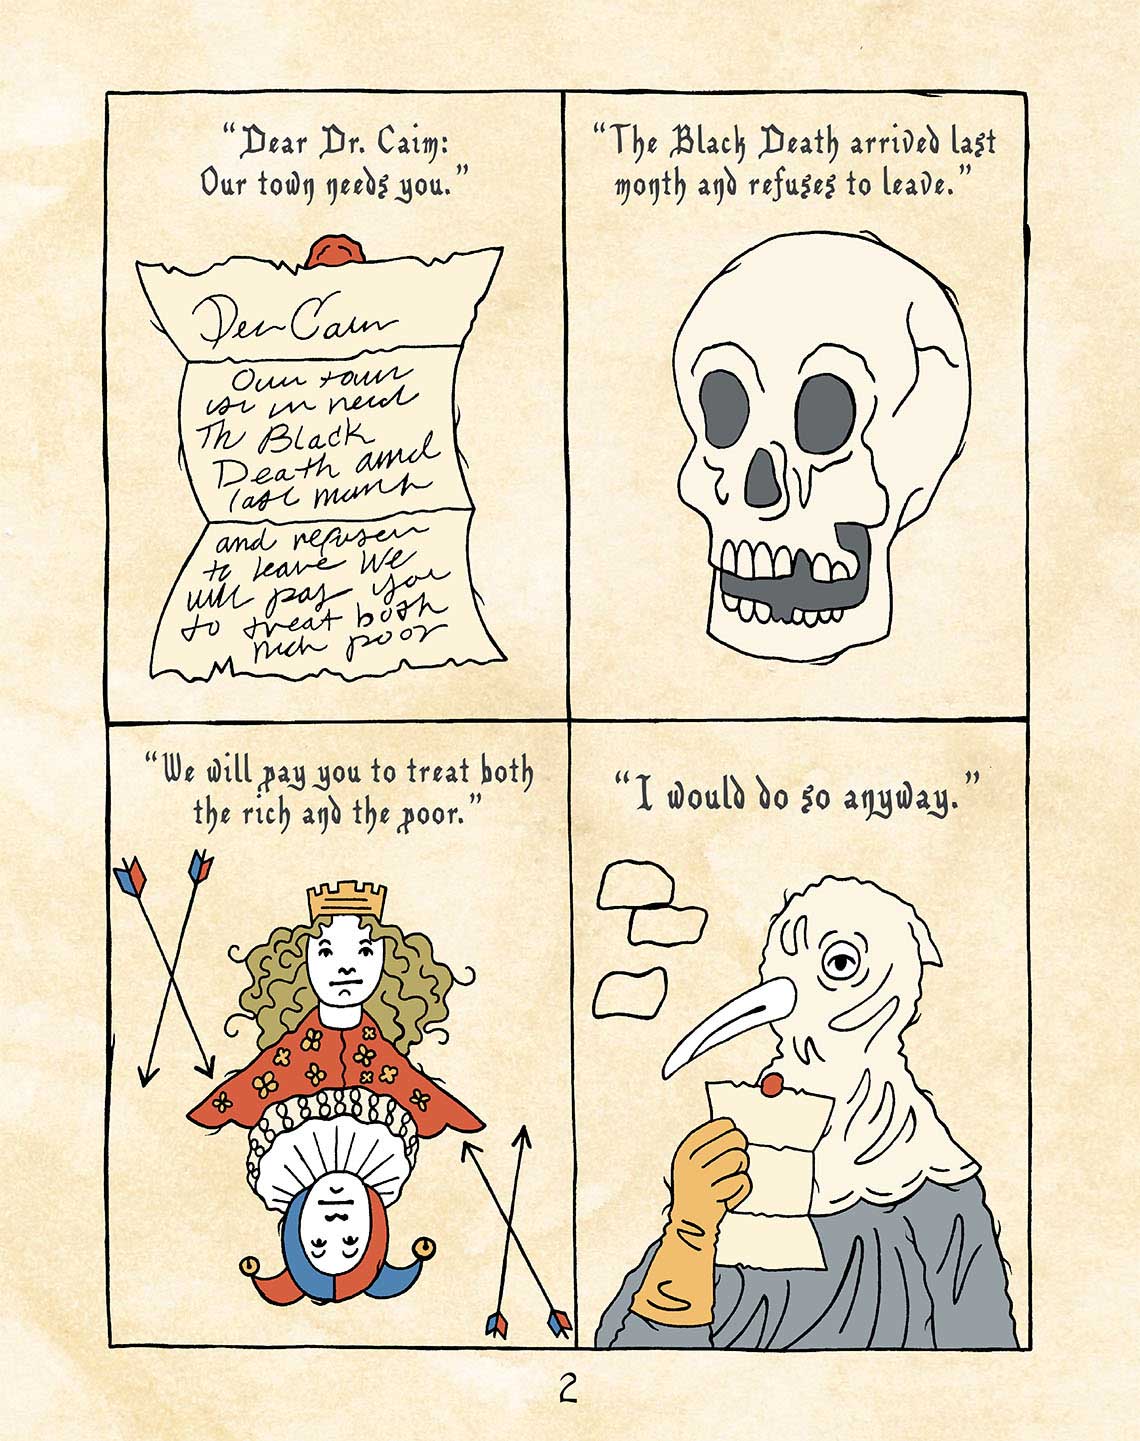 “Dear Dr. Caim:
Our town needs you.”
Our town
in need
Th Black
Death
last
and
to leave We
will pay you
to treat both
rich poor
“The Black Death arrived last
month and refuses to leave.”
“We will pay you to treat both
the rich and the poor.”
“I would do so anyway.”
2